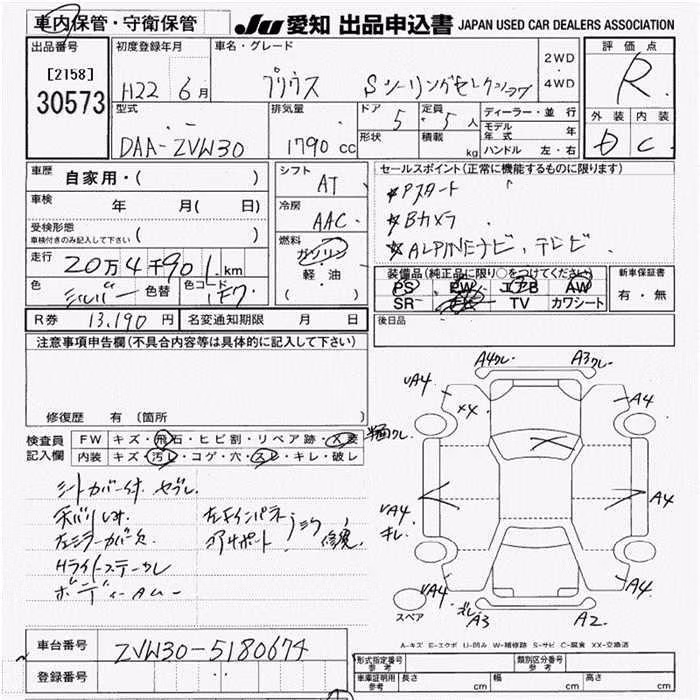 車内保管・守衛保管
JU 愛知 出品申込書 JAPAN USED CAR DEALERS ASSOCIATION
出品番号
[2158]
30573
初度登録年月
H22 6月
車名・グレード
プリウス Sツーリングセレクション
2WD
・
4WD
評価点
R
外装 内装
D C
型式
DAA-ZVW30
排気量
1790 cc
ドア 5
形状
定員 5 人
積載 kg
ディーラー・並行
モデル年式 年
ハンドル 左・右
車歴
自家用・( )
車検 年 月( 日)
受検形態
車検付きのみ記入して下さい ( )
走行
20万4千901km
色
シルバー
色替
色コード
1F7
シフト
AT
冷房
AAC
燃料
ガソリン
軽・油
( )
セールスポイント(正常に機能するものに限ります)
*Pスタート
*Bカメラ
*ALPINEナビ、テレビ
装備品(純正品に限り○をつけてください)
PS PW エアB AW
SR TV カワシート
新車保証書
有・無
後日品
R券 13,190 円 名変通知期限 月 日
注意事項申告欄(不具合内容等は具体的に記入して下さい)
修復歴 有〔箇所 〕
検査員
記入欄
FW キズ・飛石・ヒビ割・リペア跡・X要
内装 キズ・汚レ・コゲ・穴・スレ・キレ・破レ
シートカバー付
天バリ
左ミラーカバー欠
Hライトステークレ
ボディ
左Fインパネ
コアサポート
修復
A4 A3
UA4 A4
XX
UA4 A4
キレ
UA4 A4
A3 A2
スペア
A-キズ E-エクボ U-凹み W-補修跡 S-サビ C-腐食 XX-交換済
車台番号 ZVW30-5180674
登録番号
型式指定番号 参考
類別区分番号 参考
車庫証明用 参考 長さ cm 幅 cm 高さ cm